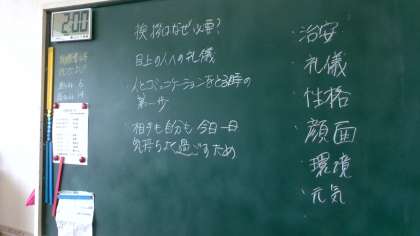 2:00
挨拶はなぜ必要?
目上の人への礼儀
人とコミュニケーションをとる時の
第一歩
相手も自分も今日一日
気持ちよく過ごすため
・治安
・礼儀
・性格
・顔面
・環境
・元気